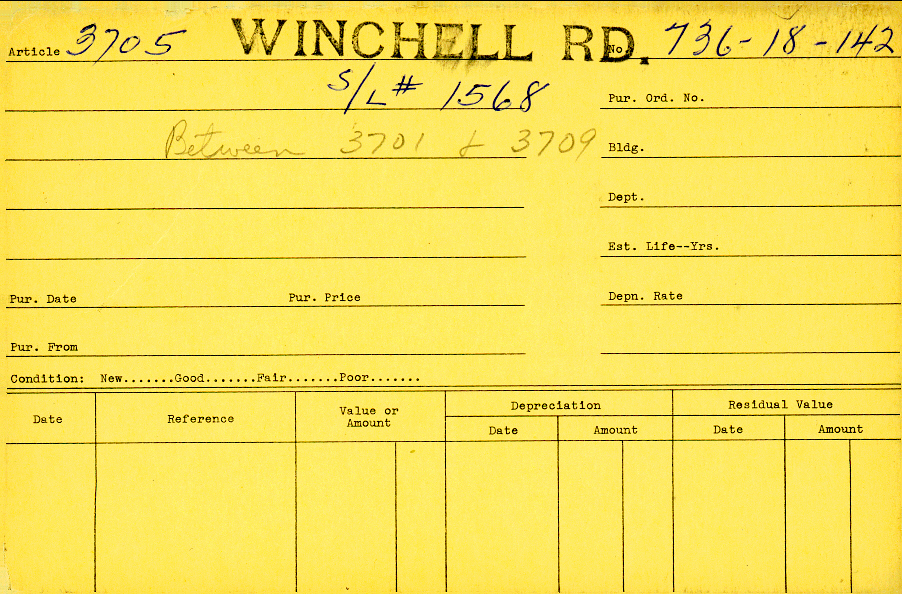 Article 3705 WINCHELL RD. No. 736-18-142
S/L# 1568
Pur. Ord. No.
Between 3701 & 3709
Bldg.
Dept.
Est. Life--Yrs.
Pur. Date Pur. Price Depn. Rate
Pur. From
Condition: New.......Good.......Fair.......Poor.......
Date Reference Value or Amount Depreciation Residual Value
Date Amount Date Amount